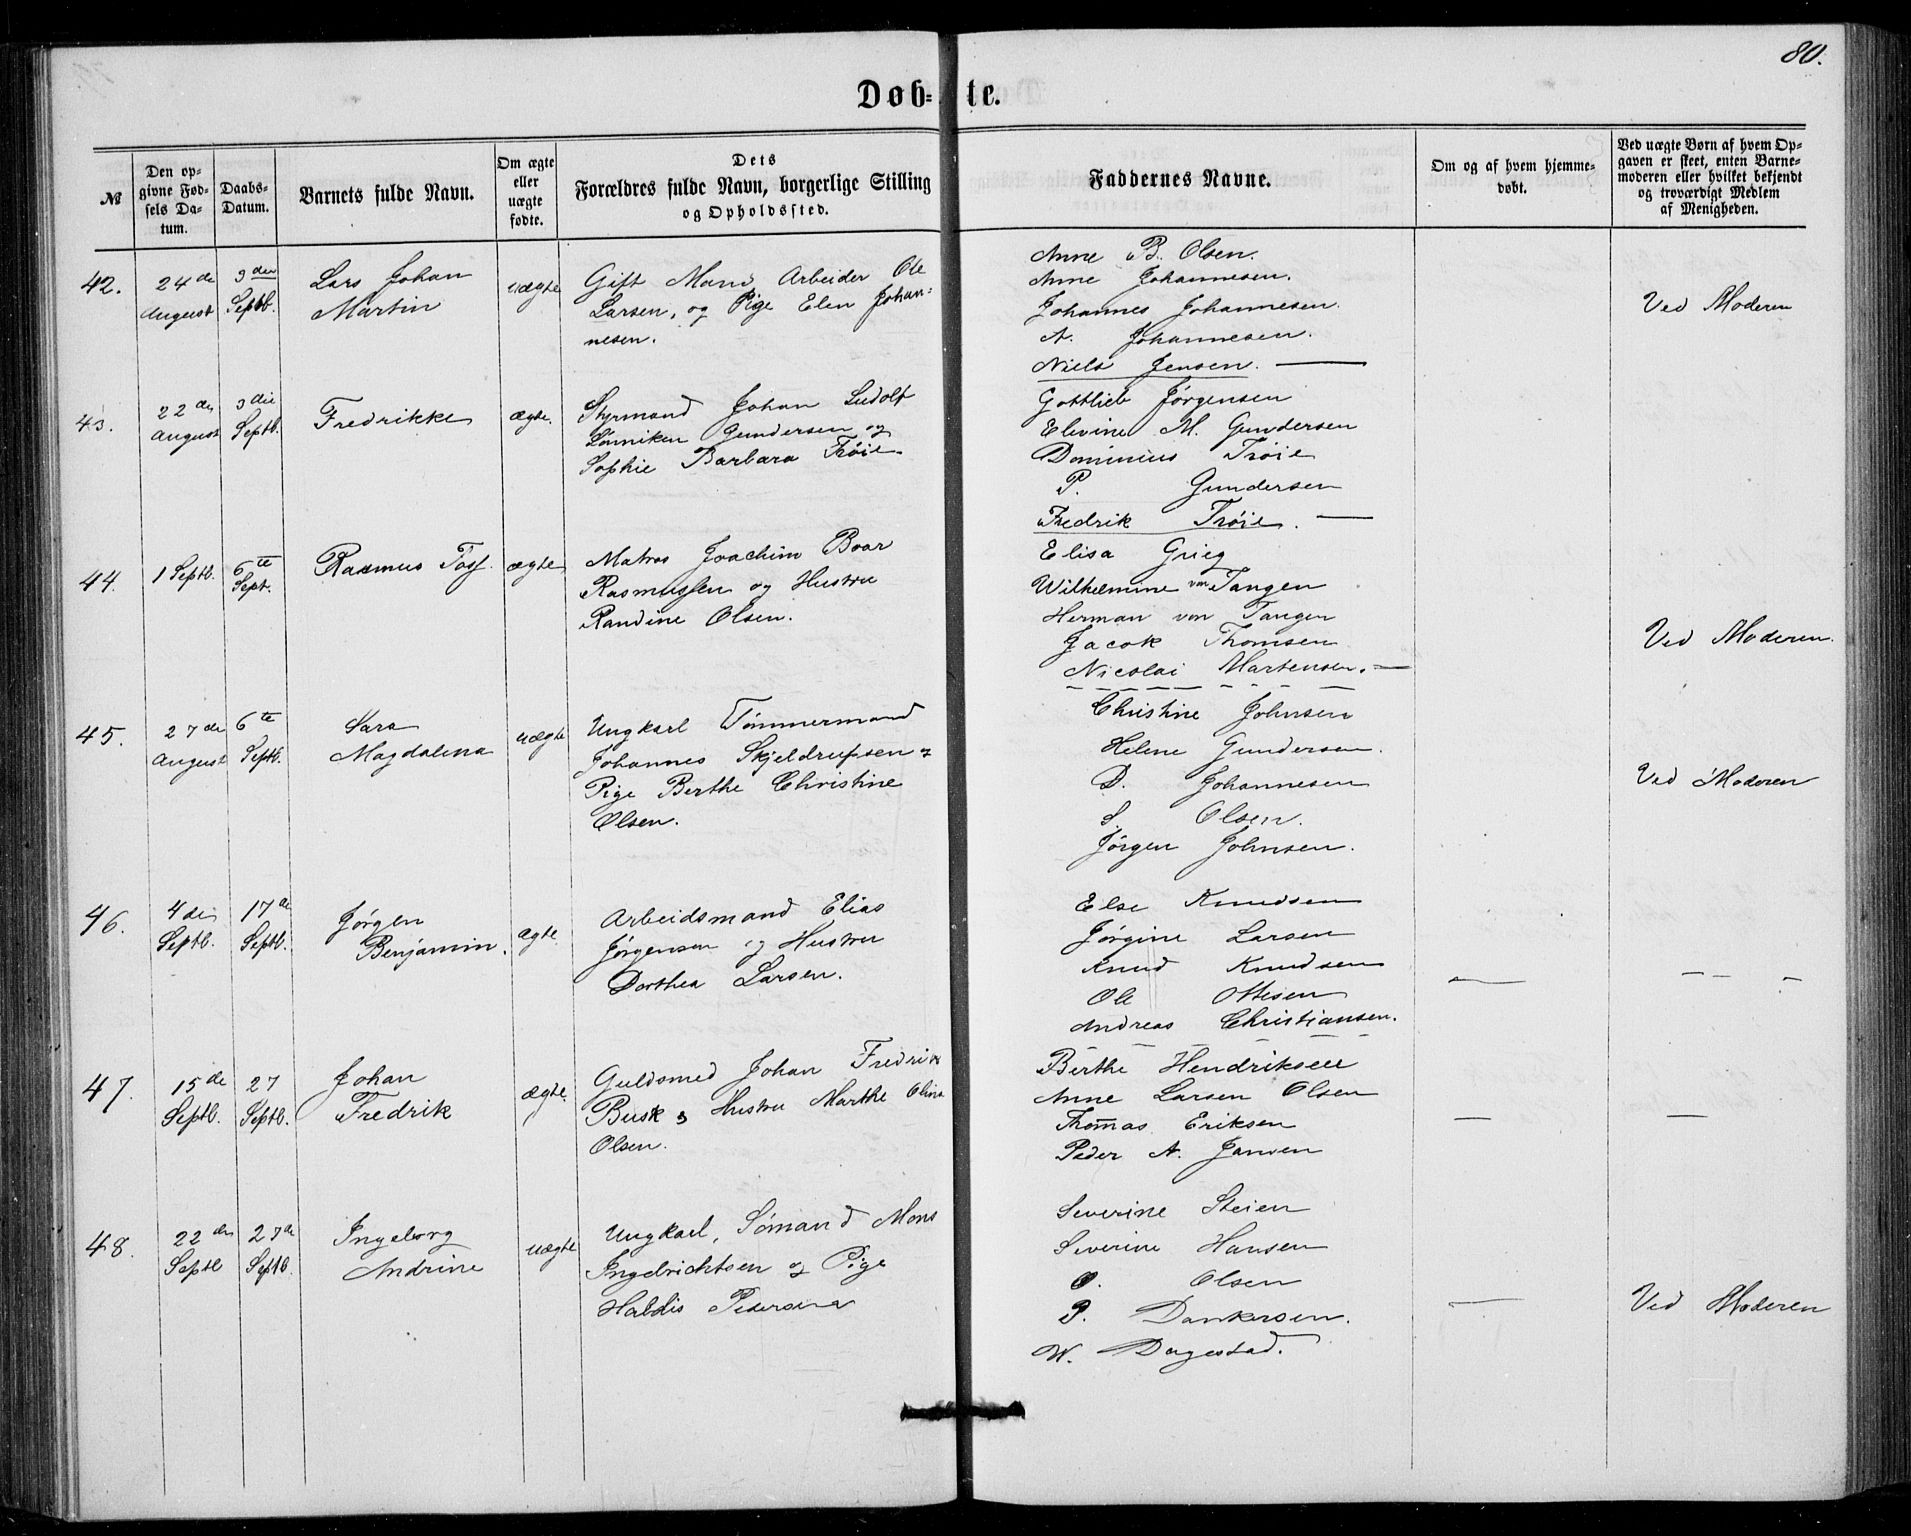 80.
Døb-te.
№
Den opgivne Fødsels Datum.
Daabs-Datum.
Barnets fulde Navn.
Om ægte eller uægte fødte.
Dets Forældres fulde Navn, borgerlige Stilling og Opholdssted.
Faddernes Navne.
Om og af hvem hjemmedøbt.
Ved uægte Børn af hvem Opgaven er skeet, enten Barnemoderen eller hvilket bekjendt og troværdigt Medlem af Menigheden.
42.
24de August
3die Septb.
Lars Johan
Martin
uægte
Gift Mand Arbeider Ole
Larsen, og Pige Elen Johan-
nesen.
Anne B. Olsen.
Anne Johannesen.
Johannes Johannesen.
A. Johannesen.
Niels Jensen. —
Ved Moderen
43.
22de August
3die Septb.
Fredrikke
ægte.
Styrmand Johan Ludolf
Lønniken Gundersen og
Sophie Barbara Trøie.
Gottlieb Jørgensen
Elevine M. Gundersen
Dominius Trøie
P. Gundersen
Fredrik Trøie. —
44.
1 Septb.
6te Sept.
Rasmus Toss.
ægte
Matros Joachim Boar
Rasmussen og Hustru
Randine Olsen.
Elisa Grieg
Wilhelmine von Tangen
Herman von Tangen
Jacob Thomsen
Nicolai Martensen. —
Ved Moderen.
45.
27de August
6te Septb.
Sara
Magdalena
uægte
Ungkarl Tømmermand
Johannes Skjeldrupsen og
Pige Berthe Christine
Olsen.
Christine Johnsen
Helene Gundersen.
D. Johannesen
S. Olsen.
Jørgen Johnsen.
Ved Moderen
46.
4de Septb.
17de Septb.
Jørgen
Benjamin.
ægte.
Arbeidsmand Elias
Jørgensen og Hustru
Dorthea Larsen.
Else Knudsen
Jørgine Larsen
Knud Knudsen
Ole Ottesen
Andreas Christiansen.
47.
15de Septb.
27 Septb.
Johan
Fredrik
ægte.
Guldsmed Johan Fredrik
Busk og Hustru Marthe Olina
Olsen.
Berthe Hendriksen
Anne Larsen Olsen
Thomas Eriksen
Peder A. Jansen
48.
22de Septb
27de Septb.
Ingeborg
Andrine
uægte
Ungkarl, Sømand Mons
Ingebrichtsen og Pige
Haldis Pedersen
Severine Steien
Severine Hansen
O. Olsen
P. Dankersen.
W. Dagestad.
Ved Moderen